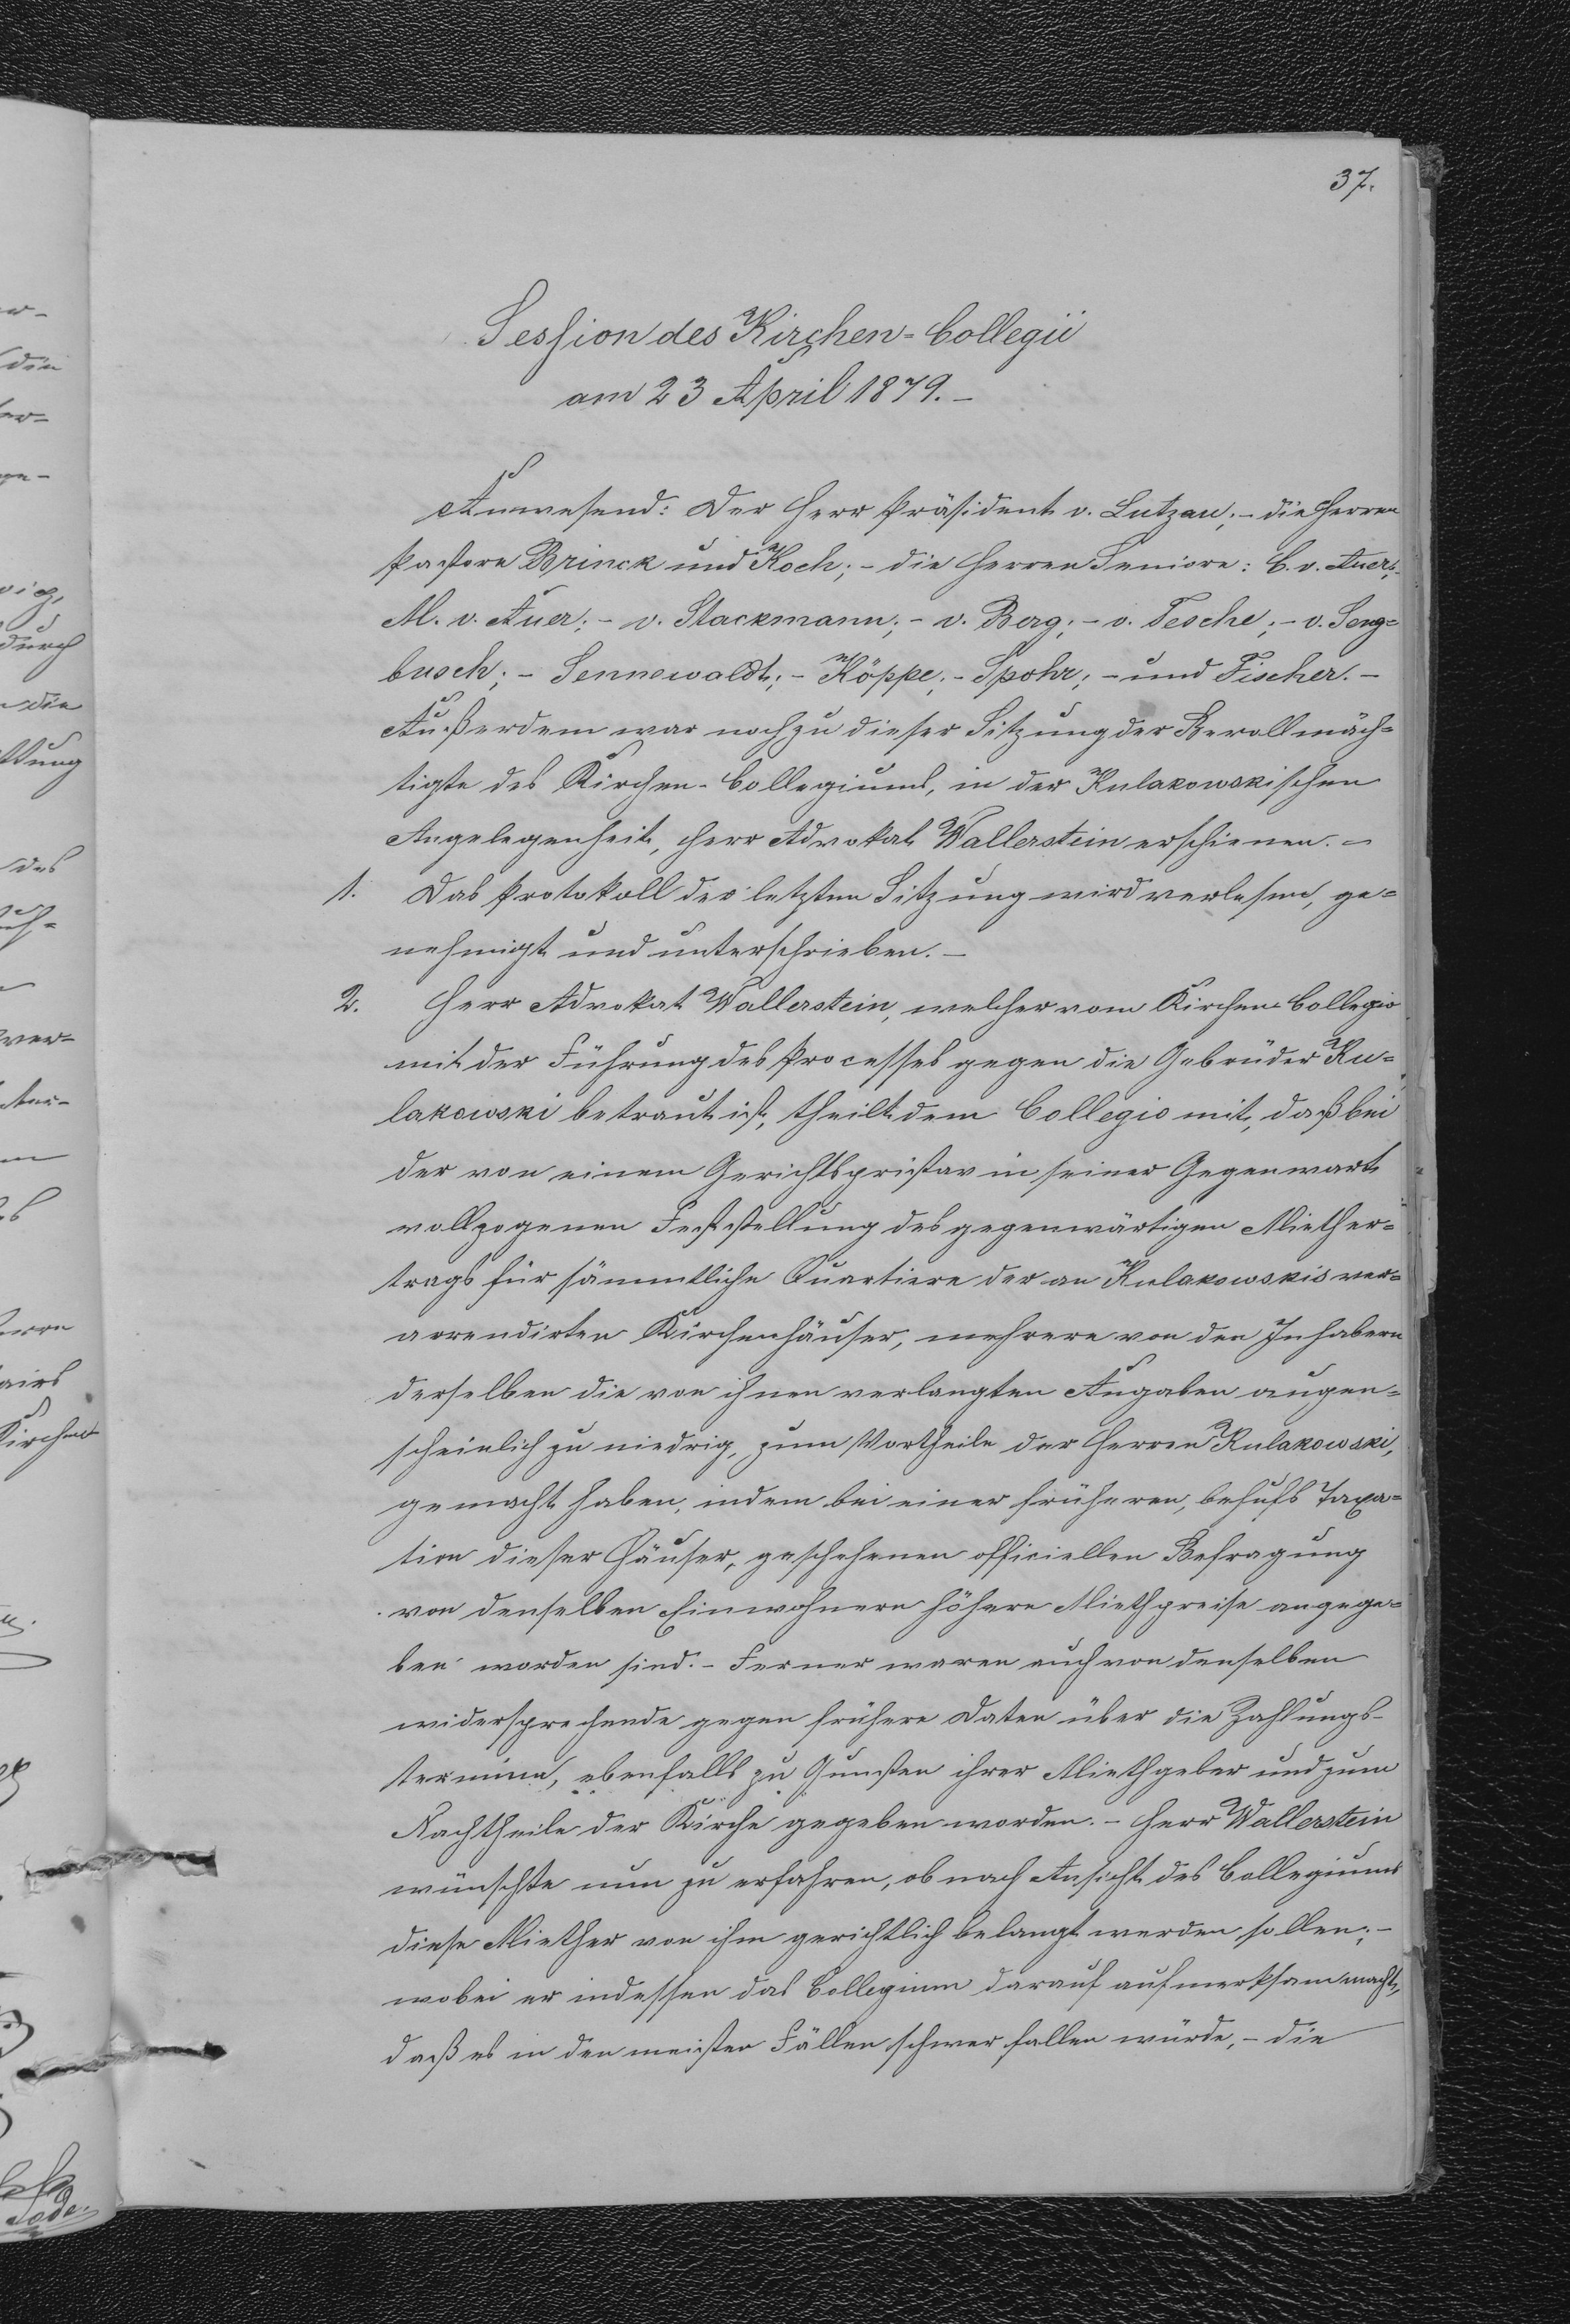 37.
Session des Kirchen-Collegii
am 23 April 1879.-
Anwesend: Der Herr Präsident v. Lutzau;- die Herren
Pastore Brinck und Koch;- die Herren Seniore: C. v. Auer;-
M. v. Auer;- v. Stackmann;- v. Berg;- v. Tesche;- v. Seng-
busch;- Sennewaldt;- Köppe;- Spohr;- und Fischer.-
Außerdem war noch zu dieser Sitzung der Bevollmäch-
tigte des Kirchen-Collegiums, in der Kulakowskischen
Angelegenheit, Herr Advokat Wallerstein erschienen.-
1. Das Protokoll der letzten Sitzung wird verlesen, ge-
nehmigt und unterschrieben.-
2. Herr Advokat Wallerstein, welcher vom Kirchen-Collegio
mit der Führung des Processes gegen die Gebrüder Ku-
lakowski betraut ist, theilt dem Collegio mit, daß bei
der von einem Gerichtspristav in seiner Gegenwart
vollzogenen Feststellung des gegenwärtigen Miether-
trags für sämmtliche Quartiere der an Kulakowskis ver-
arrendirten Kirchenhäuser, mehrere von den Inhabern
derselben die von ihnen verlangten Angaben augen-
scheinlich zu niedrig, zum Vortheile der Herren Kulakowski,
gemacht haben, indem bei einer früheren, behufs Taxa-
tion dieser Häuser, geschehenen officiellen Befragung
von denselben Einwohnern höhere Miethpreise angege-
ben worden sind.- Ferner waren auch von denselben
widersprechende gegen frühere Daten über die Zahlungs-
termine, ebenfalls zu Gunsten ihrer Miethgeber und zum
Nachtheile der Kirche gegeben worden.- Herr Wallerstein
wünschte nun zu erfahren, ob nach Ansicht des Collegiums
diese Miether von ihm gerichtlich belangt werden sollen;-
wobei er indessen das Collegium darauf aufmerksam macht,
daß es in den meisten Fällen schwer fallen würde,- die